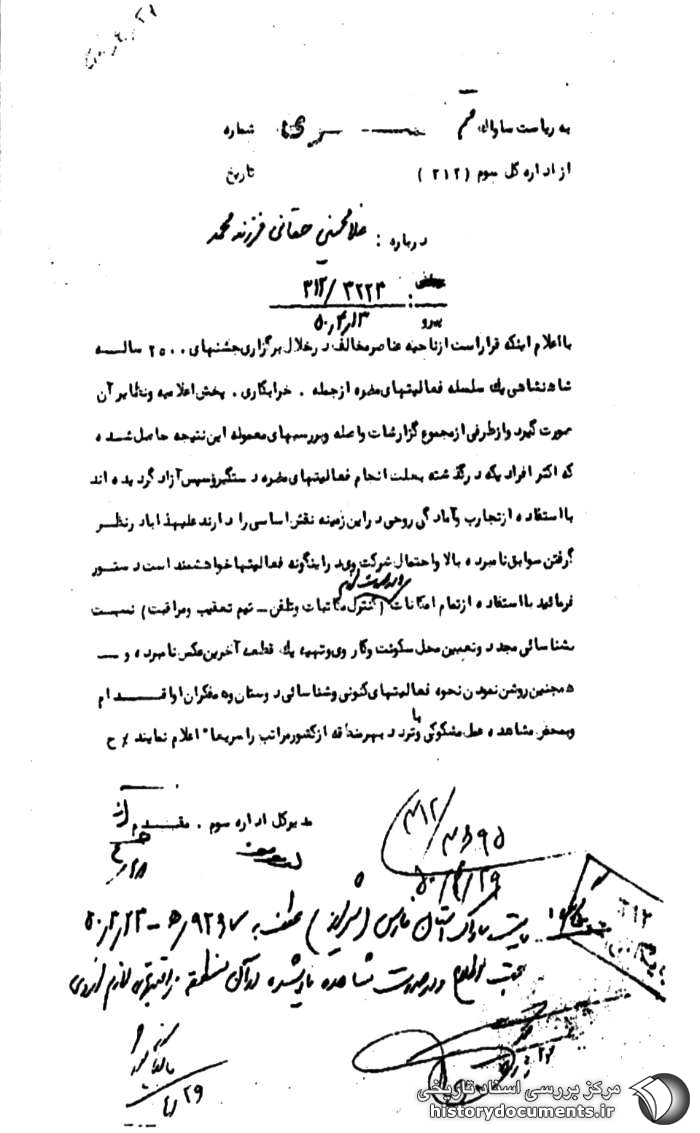 به ریاست ساواک قم شماره
از اداره کل سوم (۳۱۲) تاریخ
درباره : غلامحسین حقانی فرزند محمد
پیرو : ۳۱۲/۳۲۲۳
۵۰/۴/۱۳
با اعلام اینکه قرار است از ناحیه عناصر مخالف در خلال برگزاری جشنهای ۲۵۰۰ ساله
شاهنشاهی یک سلسله فعالیتهای مضره از جمله . خرابکاری . پخش اعلامیه و نظایر آن
صورت گیرد و از طرفی از مجموع گزارشات واصله و بررسیهای معموله این نتیجه حاصل شده
که اکثر افرادیکه در گذشته بعلت انجام فعالیتهای مضره دستگیر و سپس آزاد گردیده اند
با استفاده از تجارب و آمادگی روحی در این زمینه نقش اساسی را دارند علیهذا با در نظر
گرفتن سوابق نامبرده بالا و احتمال شرکت وی در اینگونه فعالیتها خواهشمند است دستور
فرمائید با استفاده از تمام امکانات (کنترل مکاتبات و تلفن – تیم تعقیب و مراقبت) نسبت
بشناسائی مجدد و تعیین محل سکونت و کار وی و تهیه یک قطعه آخرین عکس نامبرده و –
همچنین روشن نمودن نحوه فعالیتهای کنونی و شناسائی دوستان و همفکران او اقدام
و بمحض مشاهده عمل مشکوکی و یا تردد بهر منطقه از کشور مراتب را سریعا" اعلام نمایند٪ ح
مدیر کل اداره سوم . مقدم
۳۱۲/
۵۰/۴/۲۹
ساواک استان فارس (شیراز) عطف به ۵۰/۴/۲۳ - ۹۲۶۷/ه
جهت اطلاع و در صورت مشاهده یادشده در آن منطقه مراقبتهای لازم
۴/۲۹
مرکز بررسی اسناد تاریخی
historydocuments.ir